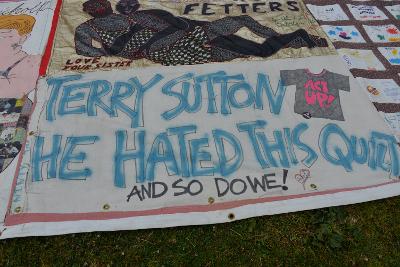 FETTERS
LOVE
YOUR SISTER
TERRY SUTTON
ACT
UP!
HE HATED THIS QUILT
AND SO DO WE!